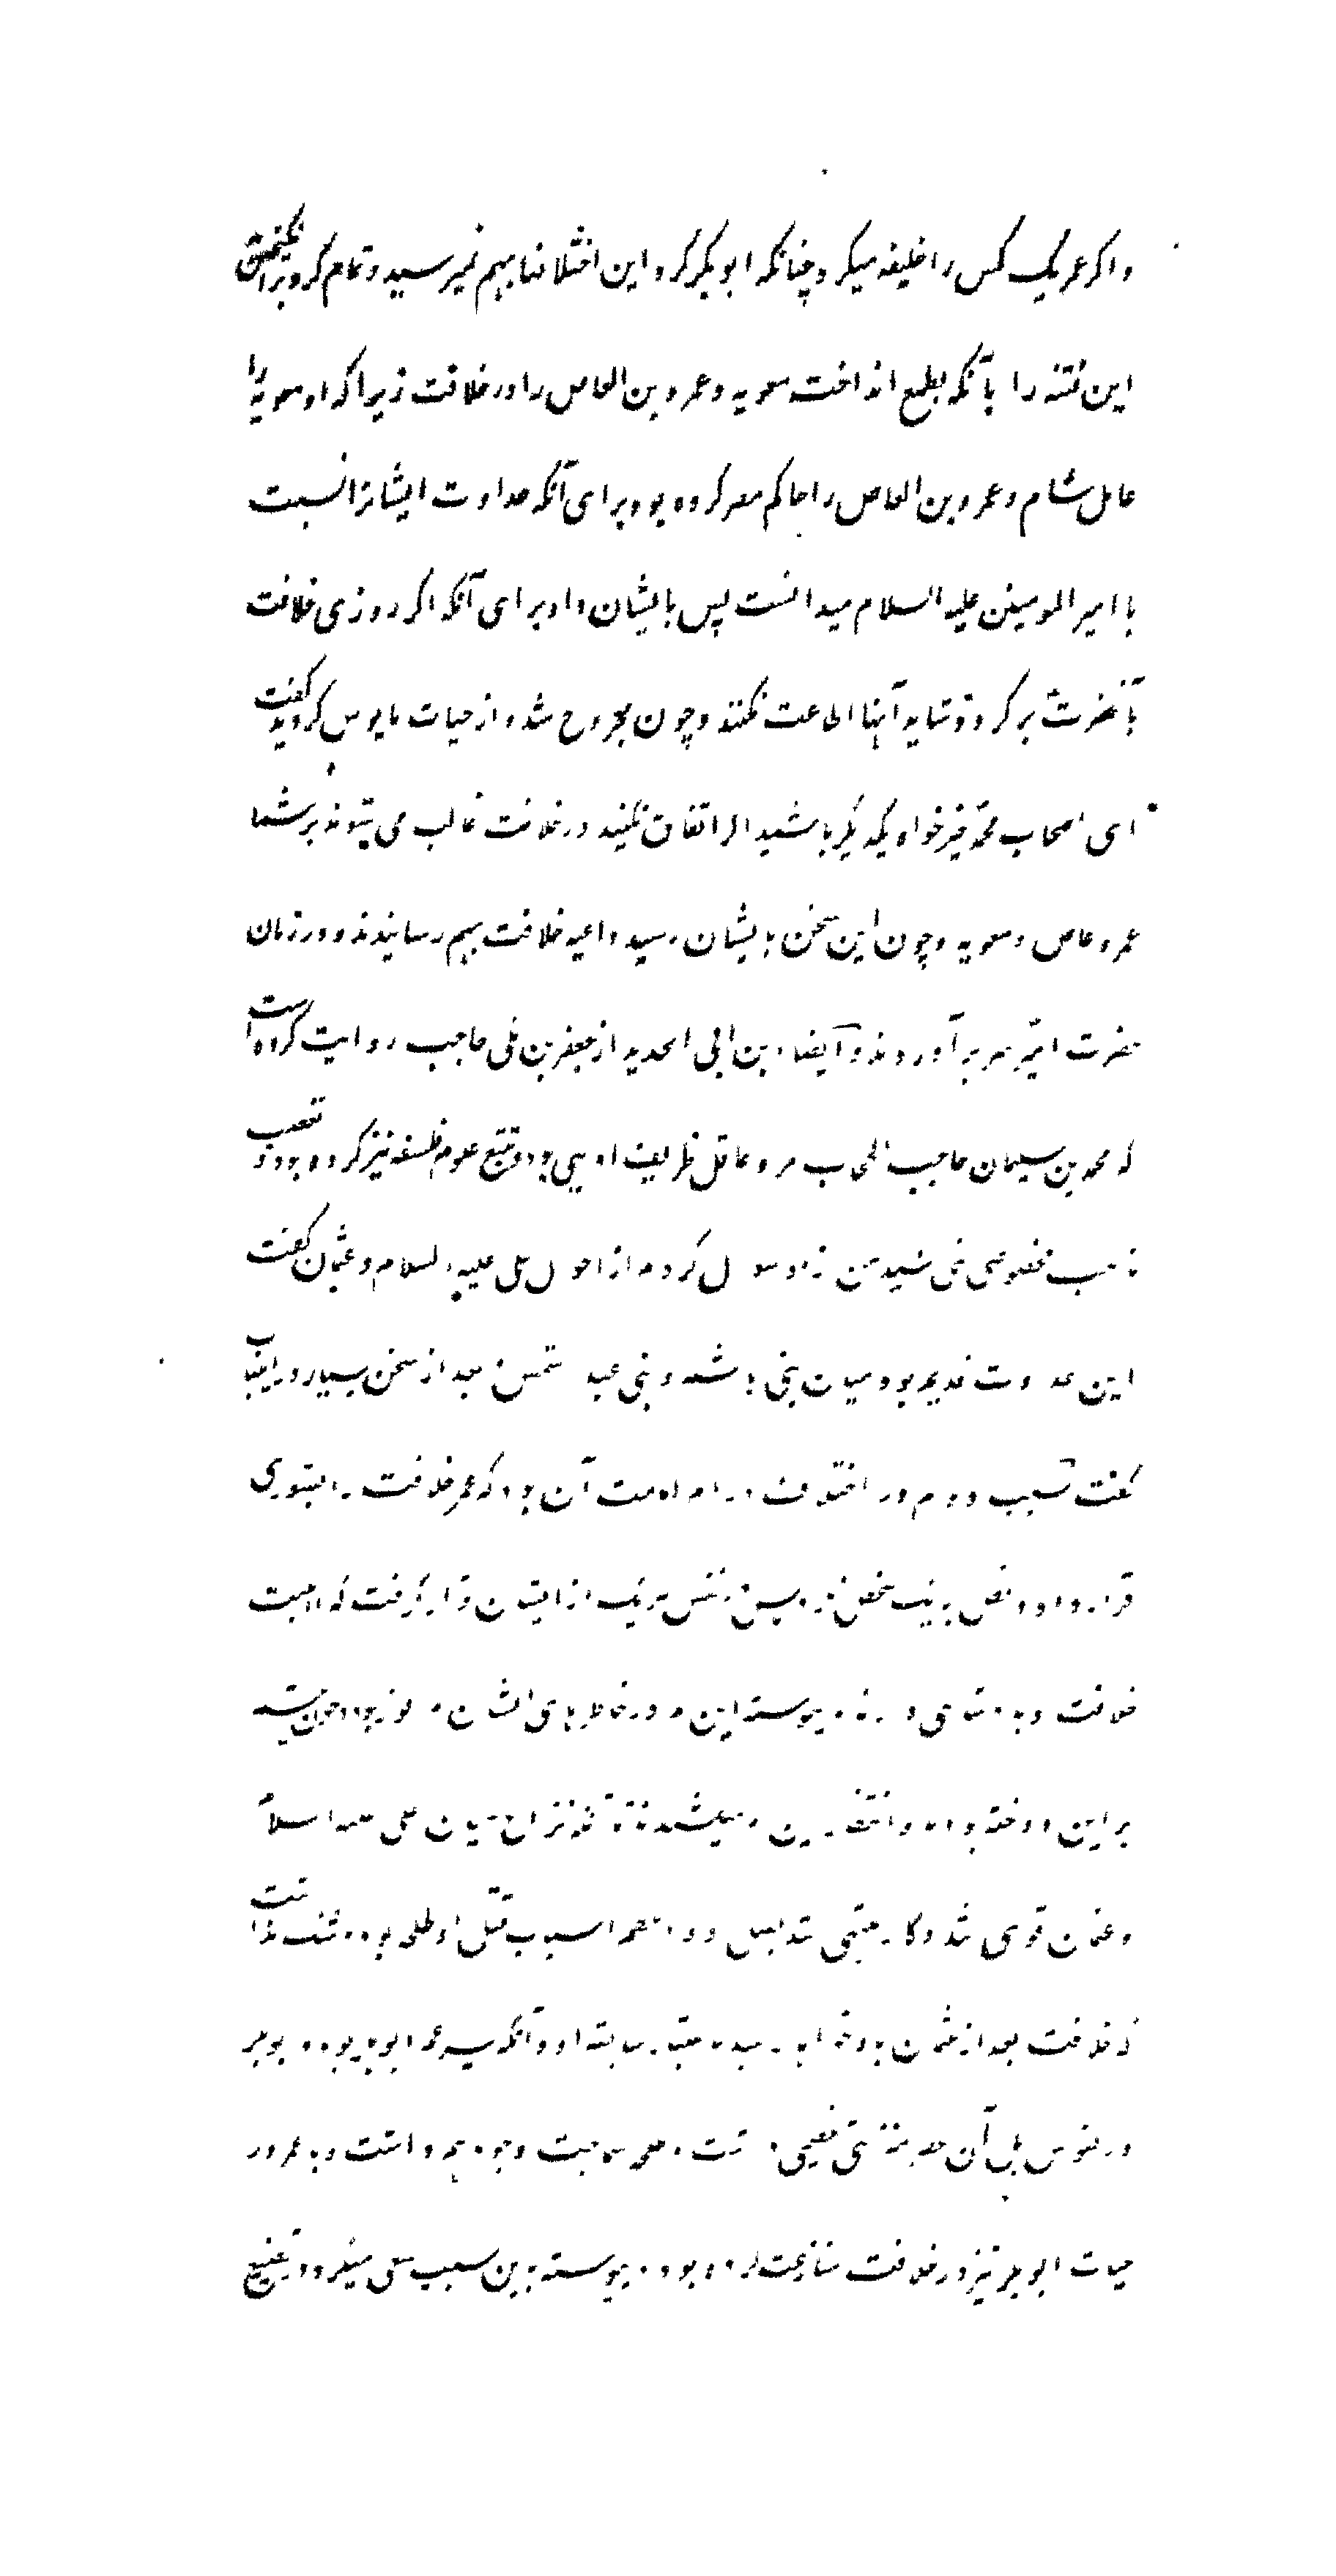 و اگر عمر یک کس را خلیفه میکرد چنانکه ابوبکر کرد این اختلافها بهم نمیرسید و تمام کرد برانگیختن
این فتنه را بآنکه بطمع انداخت معویه و عمرو بن العاص را در خلافت زیرا که او معویه را
عامل شام و عمرو بن العاص را حاکم مصر کرده بود برای آنکه عداوت ایشانرا نسبت
با امیر المومنین علیه السلام میدانست پس بایشان داد برای آنکه اگر روزی خلافت
بآنحضرت برگردد شاید آنها اطاعت نکنند و چون مجروح شد و از حیات مایوس گردید گفت
ای اصحاب محمد خیرخواه یکدیگر باشید اگر اتفاق نکنید در خلافت غالب می شوند بر شما
عمرو عاص و معویه و چون این سخن بایشان رسید داعیه خلافت بهم رسانیدند و در زمان
حضرت امیر سر برآوردند و ایضا ابن ابی الحدید از جعفر بن مکی حاجب روایت کرده است
که محمد بن سلیمان حاجب الحجاب مرد عاقل ظریف ادیبی بود و تتبع علوم فلسفه نیز کرده بود و تعصب
مذهب مخصوصی نمی کشید من از او سوال کردم از احوال علی علیه السلام و عثمان گفت
این عداوت قدیم بود میان بنی هاشم و بنی عبد شمس بعد از سخن بسیار در اینباب
گفت سبب دوم در اختلاف در امر امامت آن بود که عمر خلافت را بشوری
قرار داد و نص بر یک شخص نکرد پس در نفس هر یک از ایشان قرار گرفت که اهلیت
خلافت و پادشاهی دارند پیوسته این در خاطرهای ایشان بود و چون
بر این دوخته بودند و انتظار این میکشیدند تا آنکه نزاع میان علی علیه السلام
و عثمان قوی شد و کار منتهی شد بقتل او و اعظم اسباب قتل او طلحه بود و شک نداشت
که خلافت بعد از عثمان باو خواهد رسید باعتبار سابقه او و آنکه پسر عم ابوبکر بود و ابوبکر
در نفوس اهل آن عصر منزلتی عظیمی داشت و طلحه سماحت وجود هم داشت و با عمر در
حیات ابوبکر نیز در خلافت منازعت کرده بود و پیوسته باین سبب سعی میکرد و تهییج